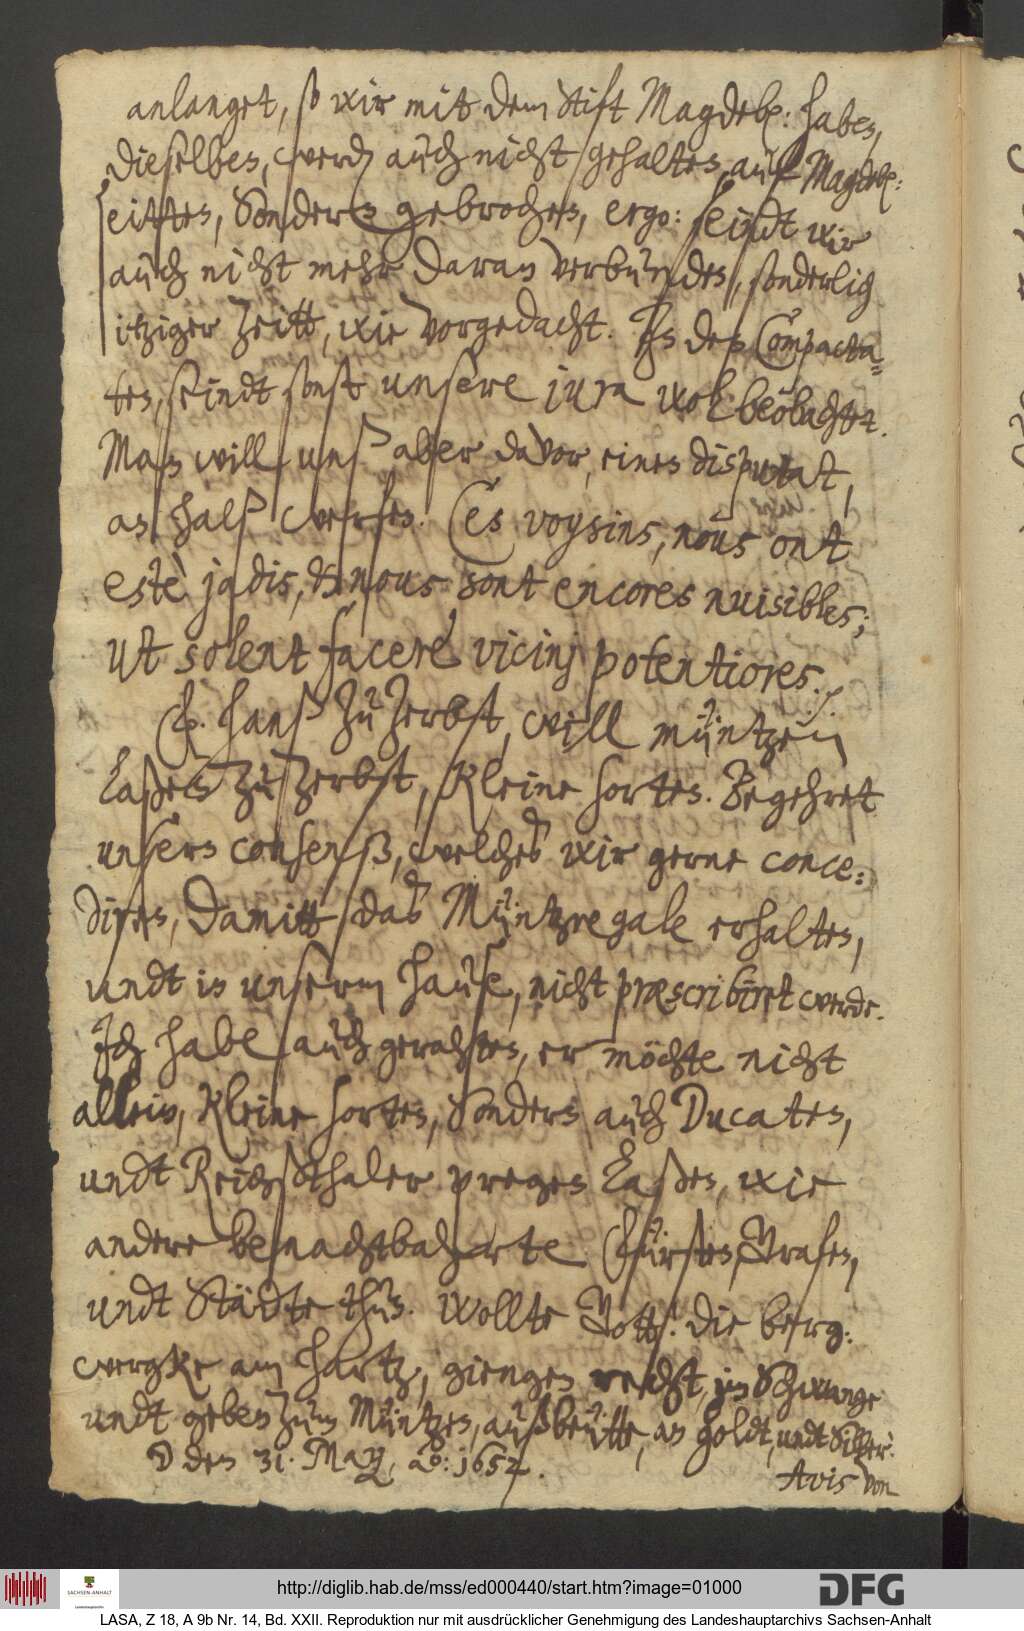 anlanget, so wir mit dem Stift Magdeb: haben,
dieselben, werden auch nicht gehalten, auf Magdeb:
seitten, sondern gebrochen, ergo: seindt wir
auch nicht mehr daran verbunden, sonderlich
itziger Zeitt, wie vorgedacht. In den Compacta-
ten, seindt sonst unsere jura wol beobachtet.
Man will unß aber davor, einen disputat,
an halß werfen. Ces voysins, nous ont
estè jadis, & nous sont encores nuisibles;
ut solent facere vicinj potentiores. /.
F. Hanß zu Zerbst, will müntzen
laßen zu Zerbst, kleine sorten. Begehret
unsern consenß, welches wir gerne conce-
diren, damitt das Müntzregale erhalten,
undt in unserm Hause, nicht præscribiret werde.
Ich habe auch gerahten, er möchte nicht
allein, kleine sorten, sondern auch Ducaten,
undt Reichsthaler pregen laßen, wie
andere benachtbahrte Fürsten Grafen,
undt Städte thun. Wollte Gott. die berg-
wergke am Hartz, giengen recht, im Schwange
undt geben zum Müntzen, außbeutte, an goldt, undt Silber.
☽ den 31. May, ao: 1652.
Avis von
http://diglib.hab.de/mss/ed000440/start.htm?image=01000
SACHSEN-ANHALT
DFG
LASA, Z 18, A 9b Nr. 14, Bd. XXII. Reproduktion nur mit ausdrücklicher Genehmigung des Landeshauptarchivs Sachsen-Anhalt